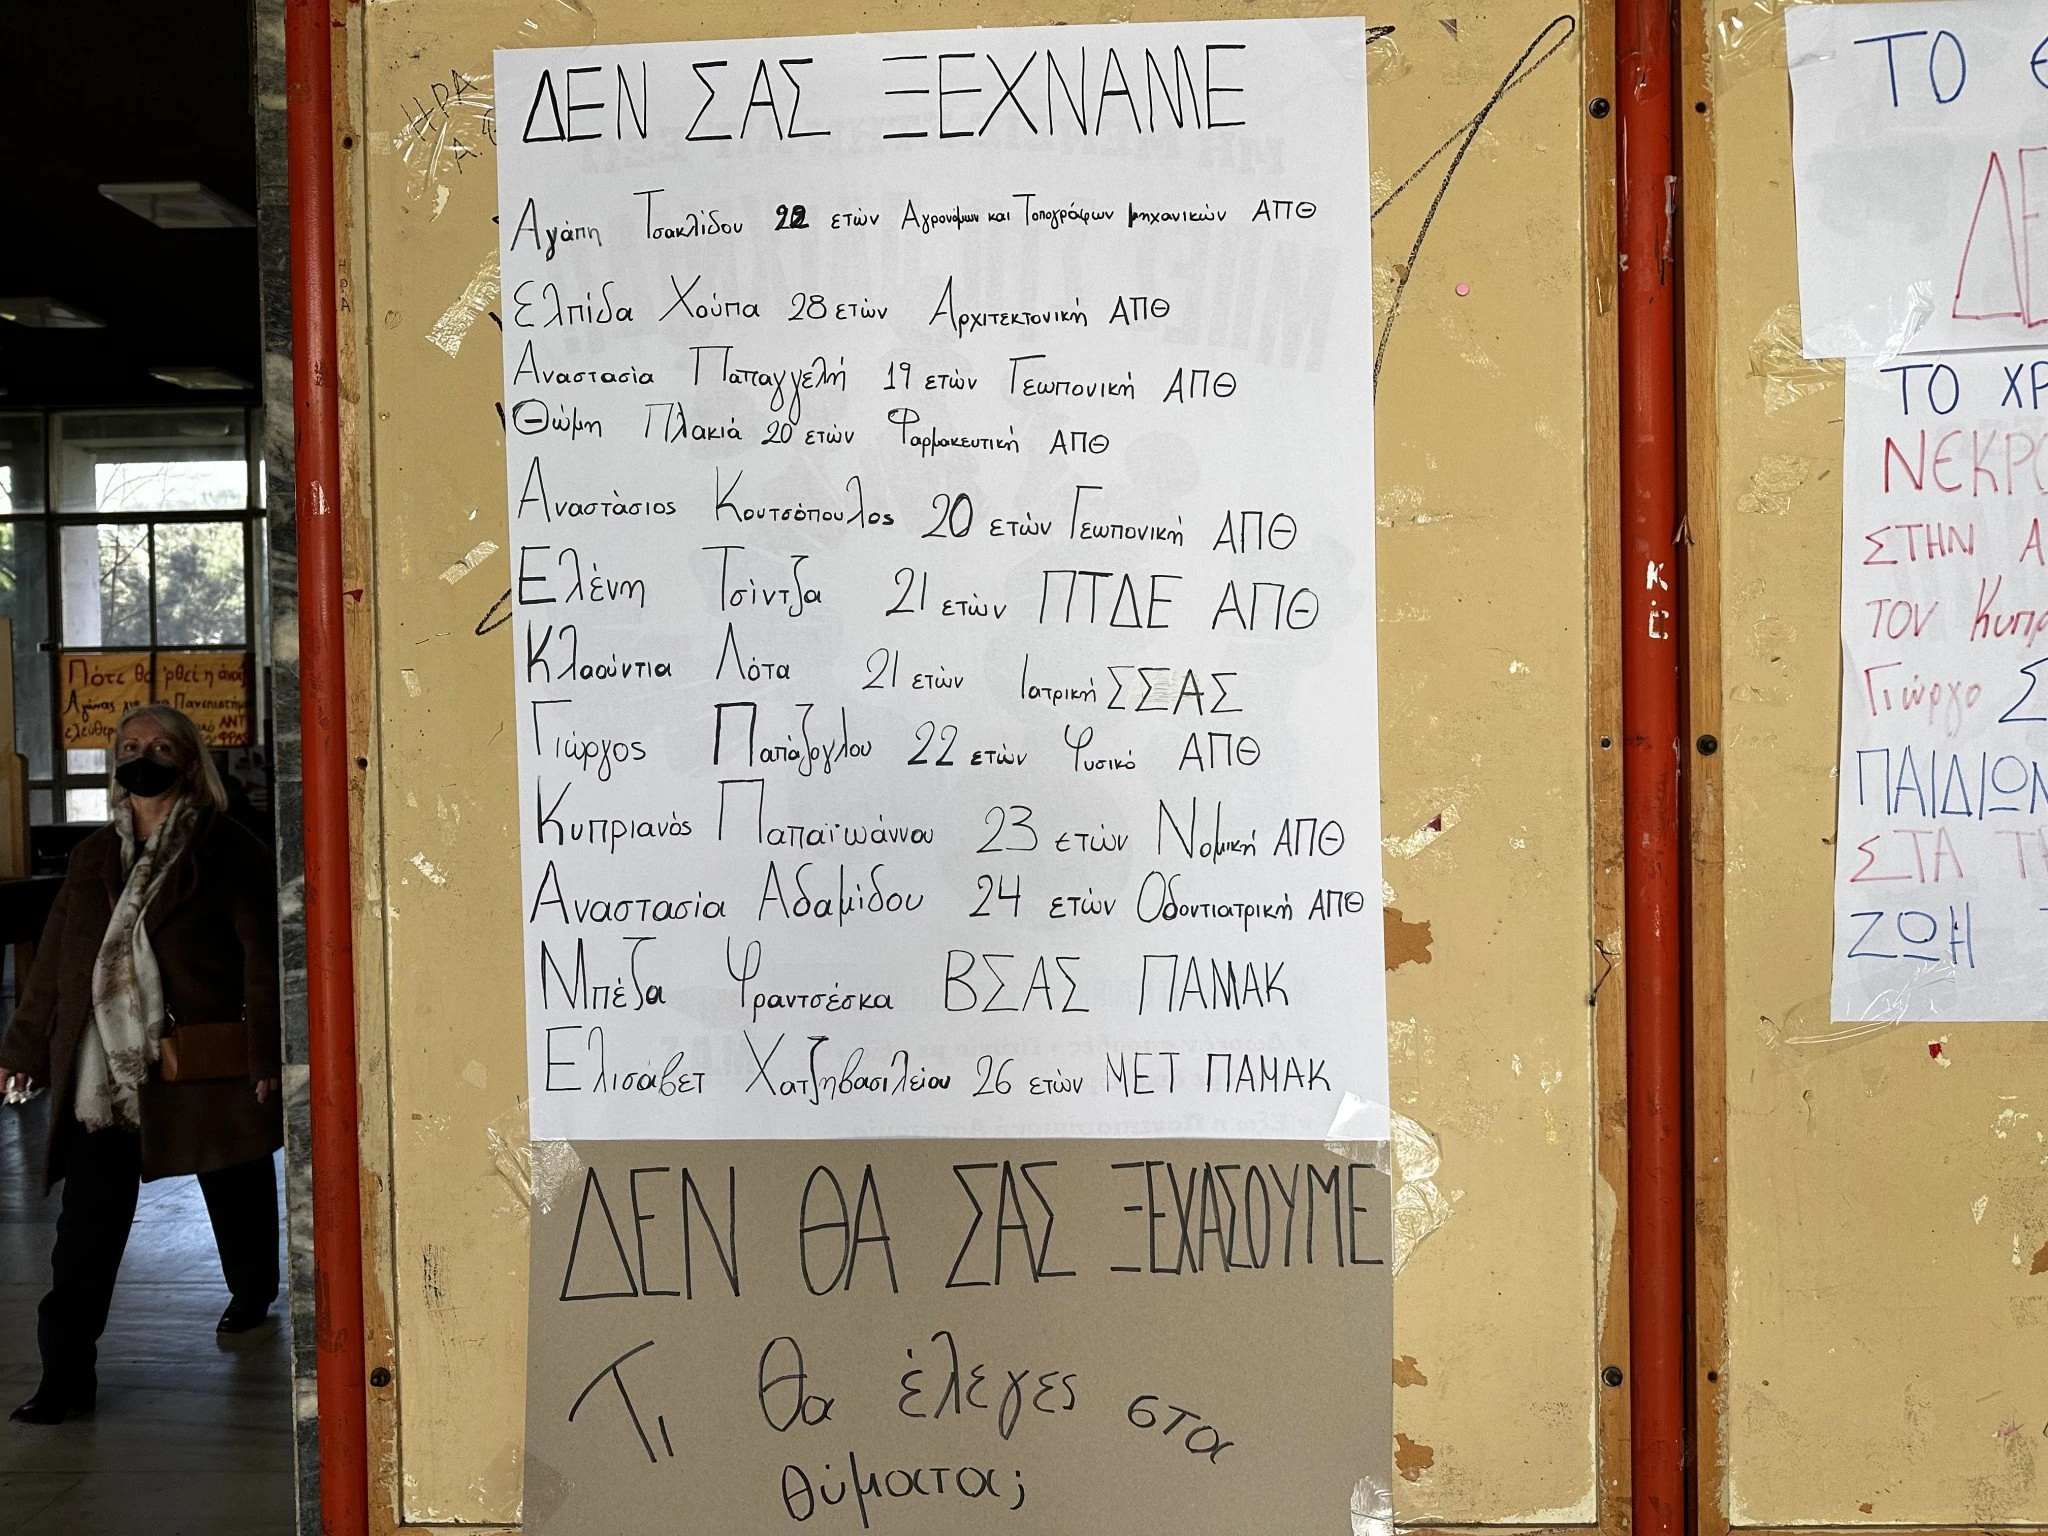 ΔΕΝ ΣΑΣ ΞΕΧΝΑΜΕ
Αγάπη Τσακλίδου 22 ετών Αγρονόμων και Τοπογράφων μηχανικών ΑΠΘ
Ελπίδα Χούπα 28 ετών Αρχιτεκτονική ΑΠΘ
Αναστασία Παπαγγελή 19 ετών Γεωπονική ΑΠΘ
Θώμη Πλακιά 20 ετών Φαρμακευτική ΑΠΘ
Αναστάσιος Κουτσόπουλος 20 ετών Γεωπονική ΑΠΘ
Ελένη Τσίντζα 21 ετών ΠΤΔΕ ΑΠΘ
Κλαούντια Λάτα 21 ετών Ιατρική ΣΣΑΣ
Γιώργος Παπάζογλου 22 ετών Φυσικό ΑΠΘ
Κυπριανός Παπαϊωάννου 23 ετών Νομική ΑΠΘ
Αναστασία Αδαμίδου 24 ετών Οδοντιατρική ΑΠΘ
Μπέζα Φραντσέσκα ΒΣΑΣ ΠΑΜΑΚ
Ελισάβετ Χατζηβασιλείου 26 ετών ΜΕΤ ΠΑΜΑΚ
ΔΕΝ ΘΑ ΣΑΣ ΞΕΧΑΣΟΥΜΕ
Τι θα έλεγες στα
θύματα;
ΤΟ
ΤΟ ΧΡ
ΝΕΚΡΟ
ΣΤΗΝ Α
ΤΟΝ Κυπρ
Γιώργο Σ
ΠΑΙΔΙΩΝ
ΣΤΑ Τ
ΖΩΗ
ΗΡΑ
ΗΡΑ
Κ.Ε
Πότε θα 'ρθει η άνοι
Αγώνας για
Πανεπιστήμ
ελεύθερ
ΑΝΤ
ΦΡΑΣ